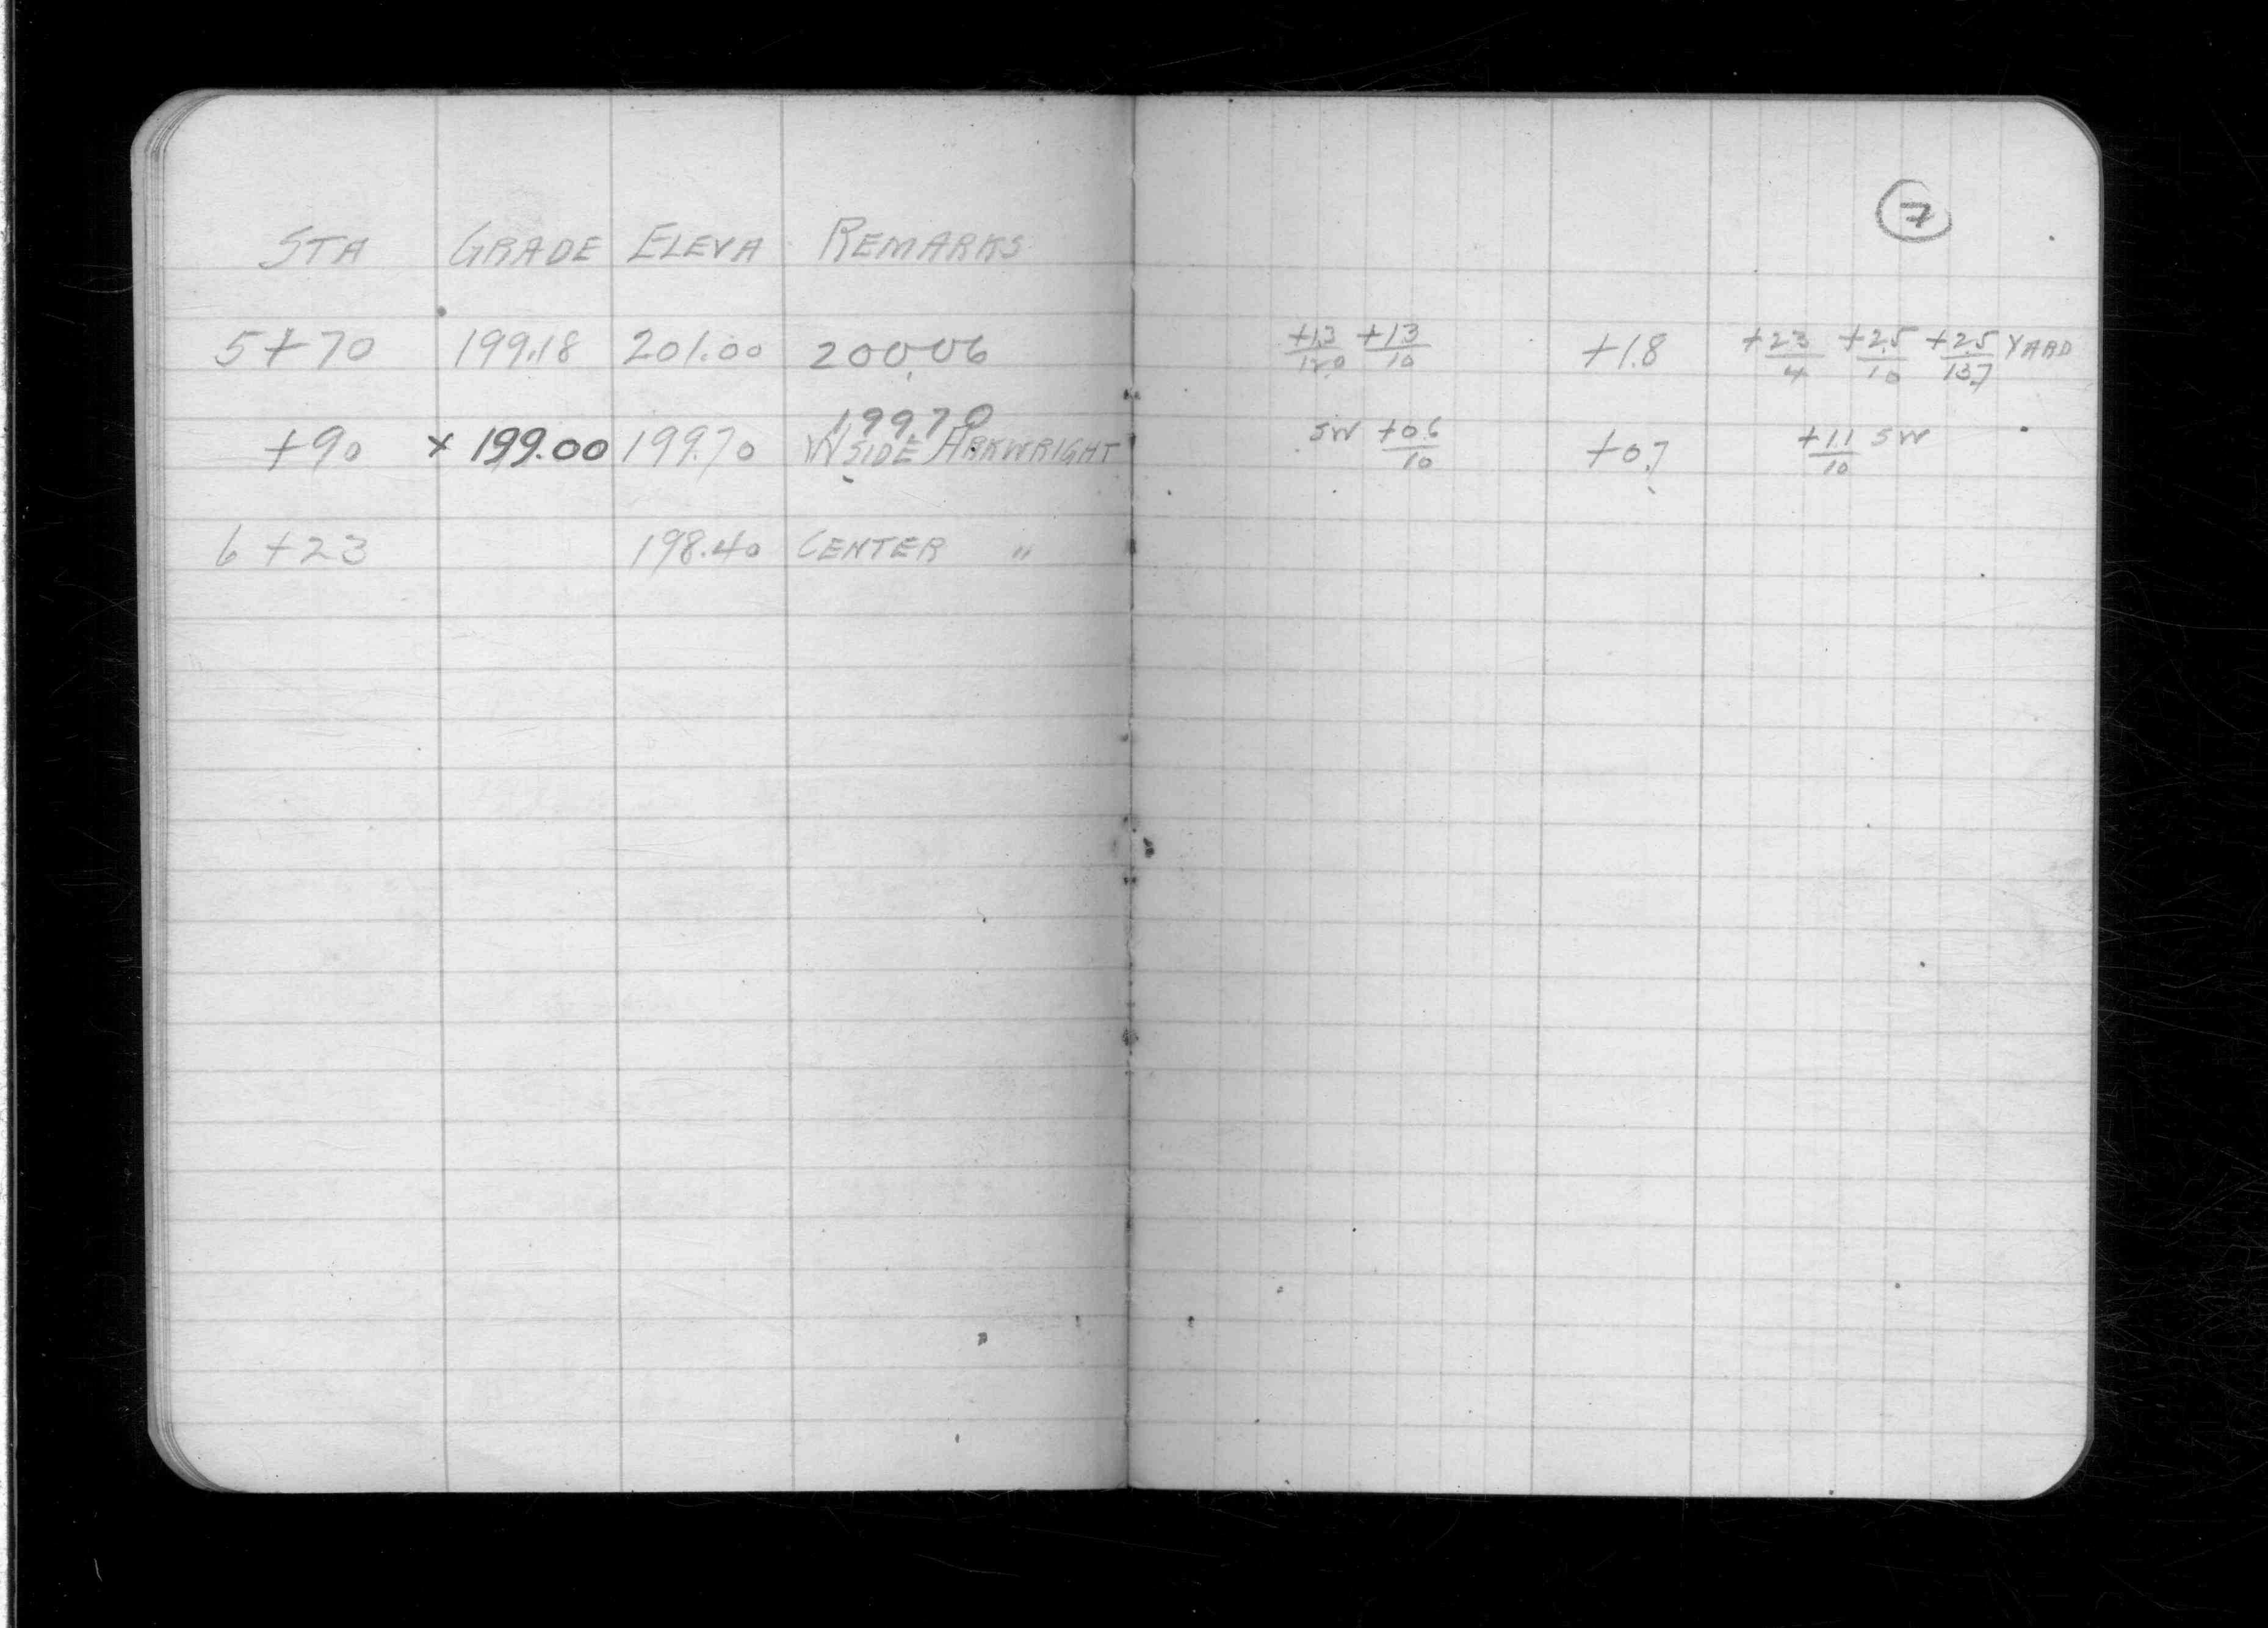 7
STA GRADE ELEVA REMARKS
5+70 199.18 201.00 200.06 +1.3/12.0 +1.3/10 +1.8 +2.3/4 +2.5/10 +2.5/13.7 YARD
199.70
+90 x 199.00 199.70 W SIDE ARKWRIGHT SW +0.6/10 +0.7 +1.1/10 SW
6+23 198.40 CENTER "